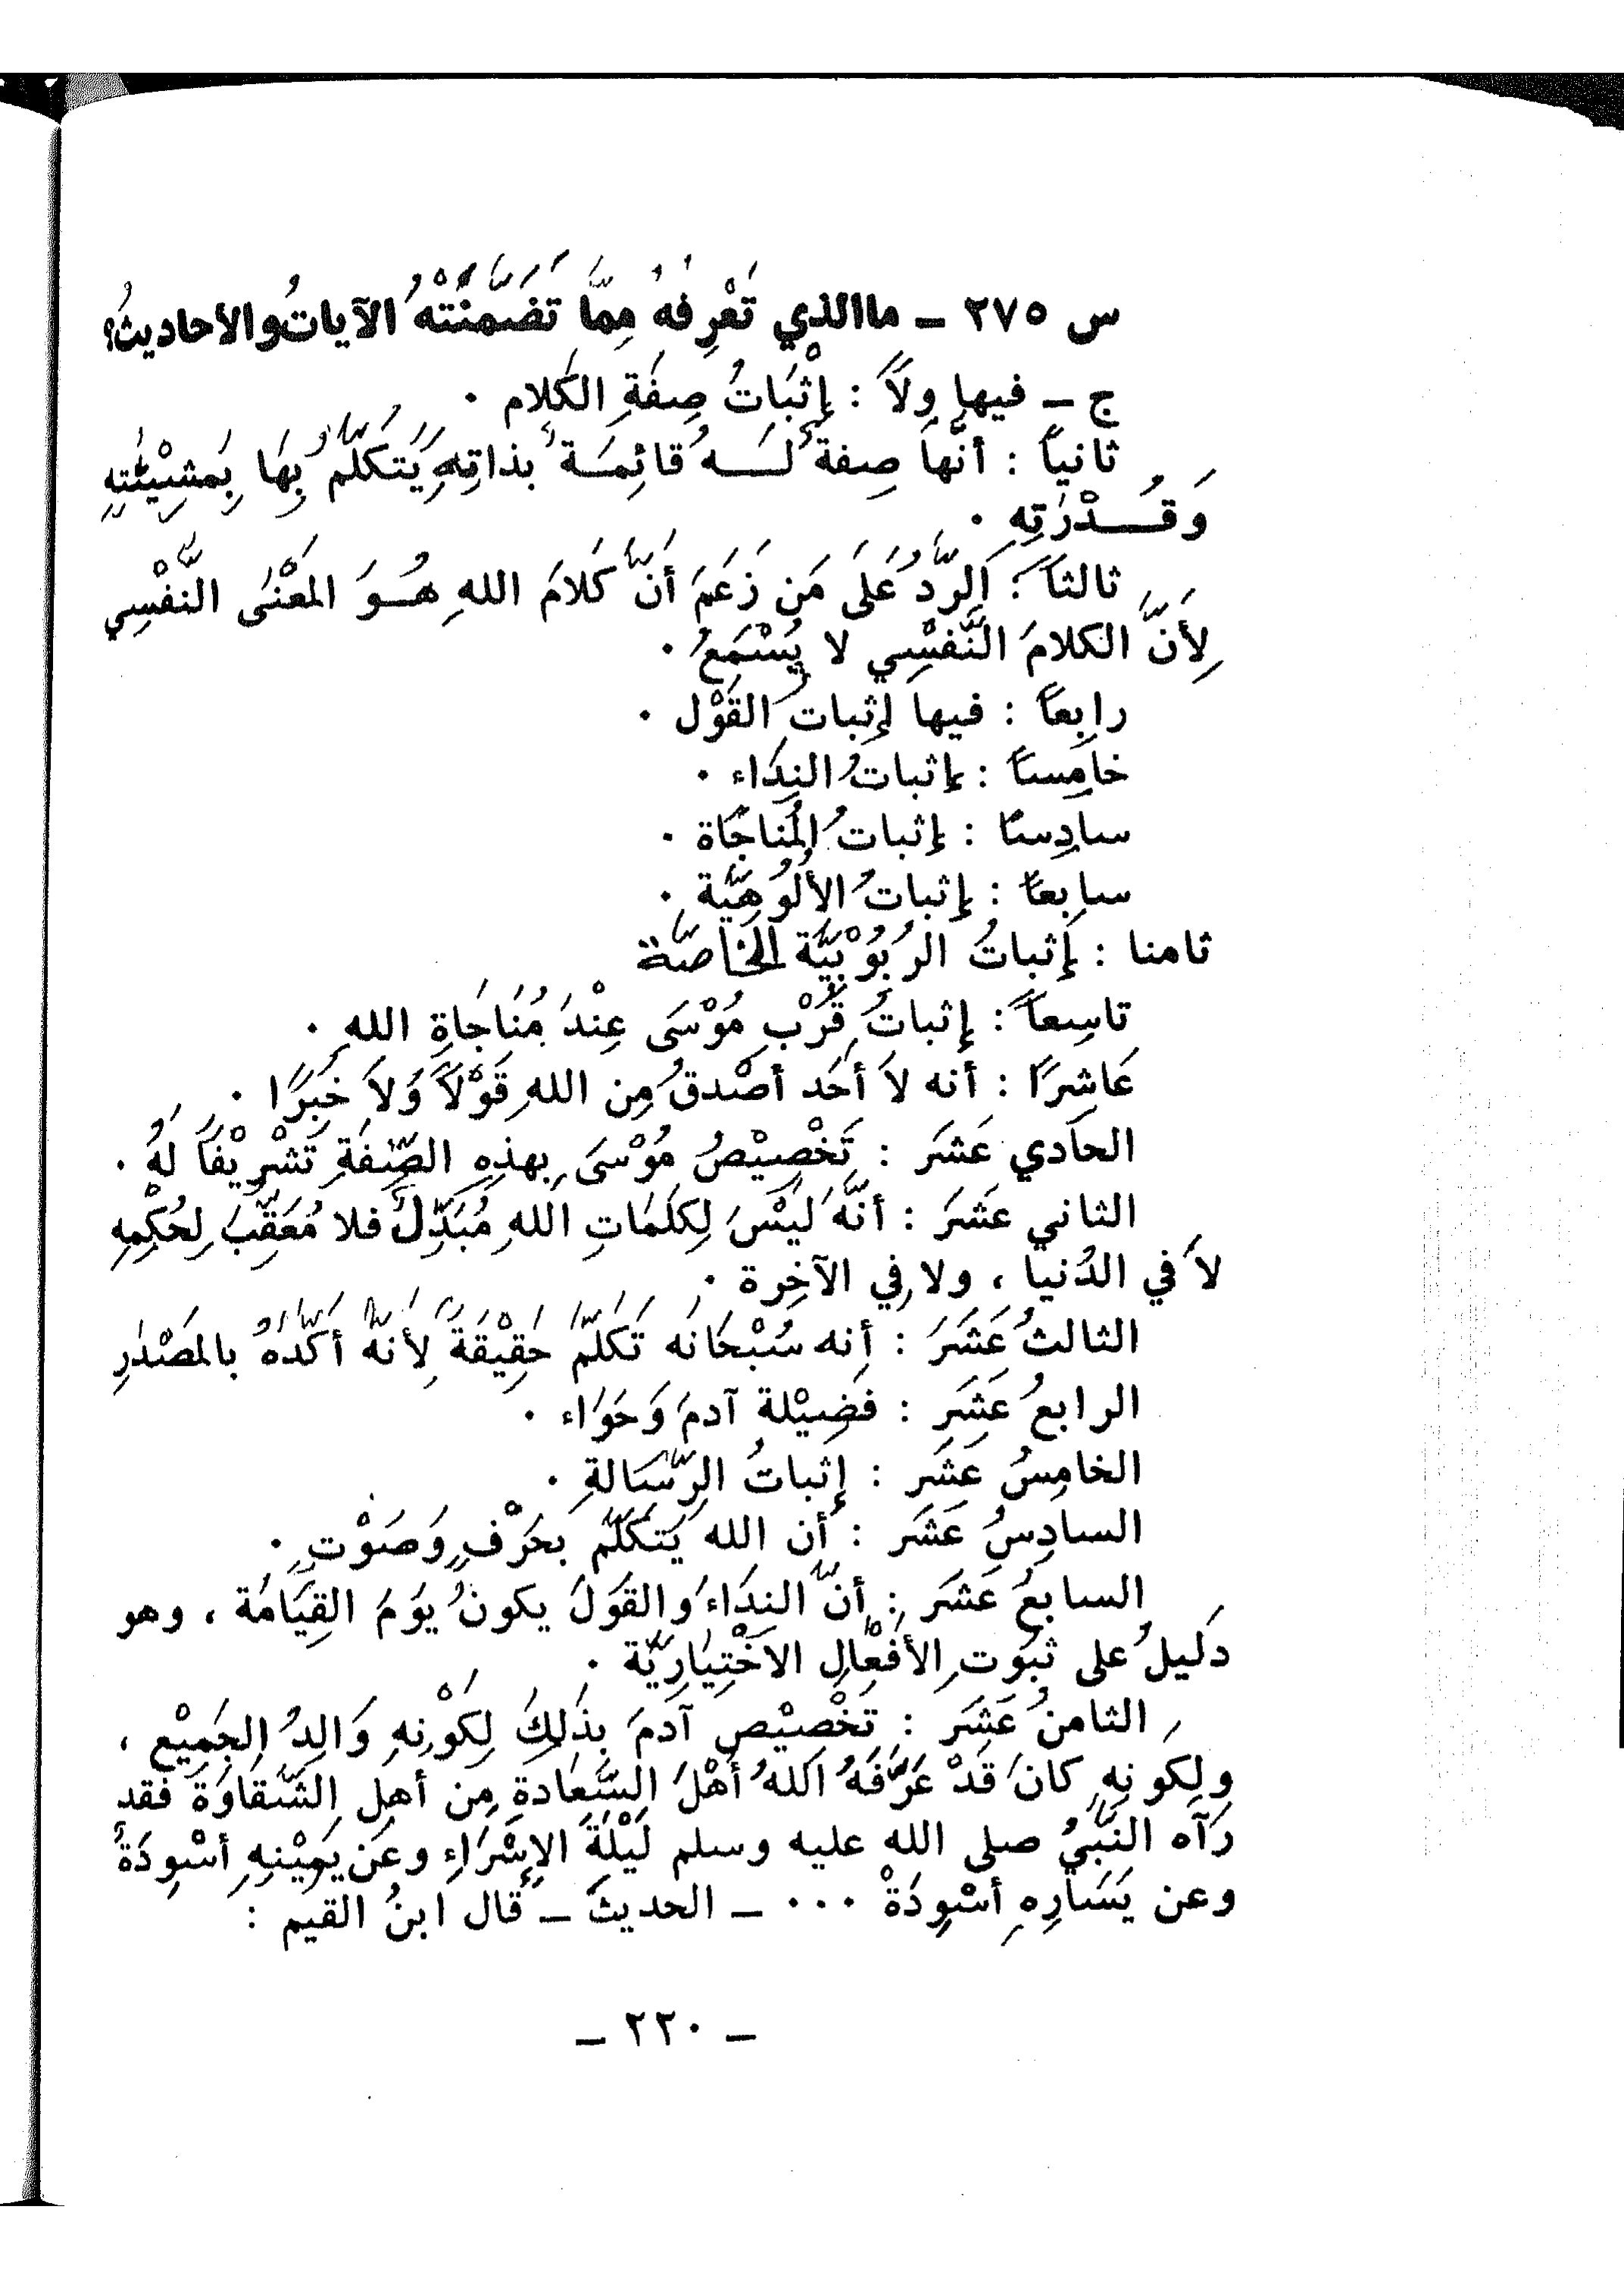 س ٢٧٥ ـ ماالذي تَعْرِفهُ مِمَّا تَضَمَّنَتْهُ الآياتُ والأحاديثُ؟
ج ـ فيها ولاً : إثْبَاتُ صِفَةِ الكَلام ٠
ثانياً : أنَّها صِفةٌ لَــهُ قائِمَــةٌ بذاتِهِ يَتكَلَّمُ بِهَا بِمَشِيْئَتِهِ
وَقُــدْرَتِهِ ٠
ثالثاً : الرَّدُ عَلَى مَن زَعَمَ أنَّ كَلامَ اللهِ هُــوَ المَعْنَى النَّفْسِي
لِأَنَّ الكلامَ النَّفْسِي لا يُسْمَعُ ٠
رابِعاً : فيها إثبات القَوْل ٠
خامِساً : إثباتُ النِدَاء ٠
سادِسًا : إثباتُ المُناجَاة ٠
سابِعاً : إثباتُ الأُلُوهِيَّة ٠
ثامنا : إثباتُ الرُبُوْبِيَّة الخَاصَّة
تاسِعاً : إثباتُ قُرْبِ مُوْسَى عِنْدَ مُنَاجَاةِ اللهِ ٠
عَاشِرًا : أنه لاَ أحَد أصْدقُ مِن اللهِ قَوْلاً وَلاَ خَبَرًا ٠
الحادي عَشَر : تَخْصِيْصُ مُوْسَى بِهذِهِ الصِّفَةِ تَشْرِيْفاً لَهُ ٠
الثاني عَشَرَ : أنَّهُ لَيْسَ لِكَلَمَاتِ اللهِ مُبَدِّلٌ فلا مُعَقِّبَ لِحُكْمِهِ
لاَ في الدُنيا ، ولا فِي الآخِرة ٠
الثالثُ عَشَرَ : أنه سُبْحَانَه تَكَلَّمَ حَقِيْقَةً لِأنَّهُ أكَّدَهُ بالمَصْدَرِ
الرابعُ عَشَر : فَضِيْلة آدمَ وَحَوَاء ٠
الخامِسُ عَشَر : إثباتُ الرِّسَالةِ ٠
السادِسُ عَشَر : أن الله يَتَكَلَّم بحَرْفٍ وَصَوْتٍ ٠
السابعُ عَشَر : أنَّ النِدَاءَ والقَوَلَ يكونُ يوَمَ القِيَامَة ، وهو
دَليلٌ على ثبُوتِ الأفْعَالِ الاخْتِيَارِيَّة ٠
الثامنُ عَشَر : تَخْصِيْص آدمَ بِذَلِكَ لِكَوْنِهِ وَالِدُ الجَمِيْع ،
ولِكَونِهِ كانَ قَدْ عَرَّفَهُ اللهُ أَهْلَ السَّعَادةِ مِن أهلِ الشَّقَاوَة فقد
رَآه النَّبيُ صلى الله عليه وسلم لَيْلَةَ الإِسْرَاءِ وعَن يَمِيْنِهِ أسْوِدَةٌ
وعن يَسَارِهِ أسْوِدَةٌ ٠٠٠ ـ الحديثَ ـ قال ابنُ القيم :
ـ ٢٢٠ ـ